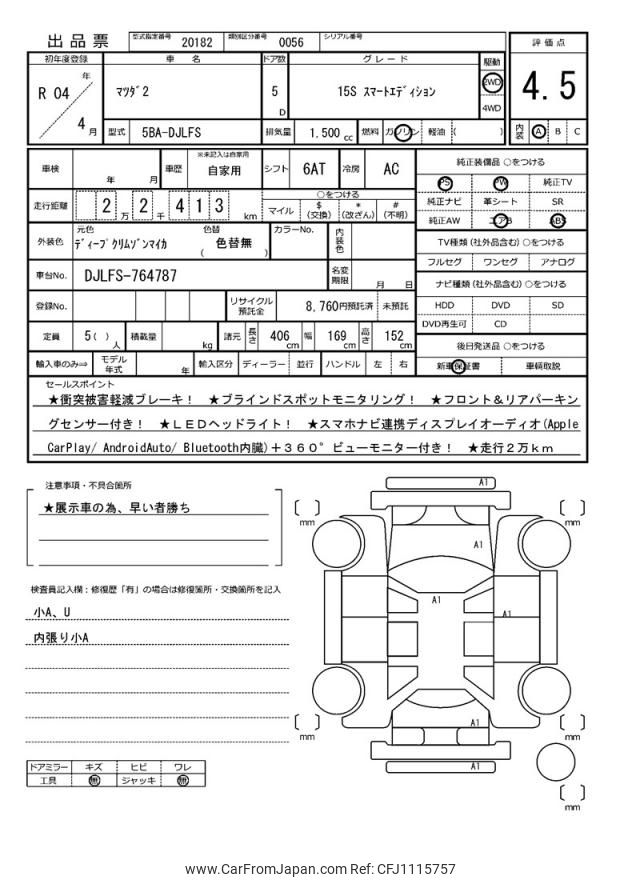 出品票 型式指定番号 20182 類別区分番号 0056 シリアル番号
初年度登録 車 名 ドア数 グレード 駆動 評価点
R 04 年 4 月 マツダ2 5 D 15S スマートエディション 2WD 4WD 4.5
型式 5BA-DJLFS 排気量 1.500 cc 燃料 ガソリン 軽油 ( ) 内装 A B C
車検 年 月 車歴 ※未記入は自家用 自家用 シフト 6AT 冷房 AC
走行距離 2 万 2 千 4 1 3 km ○をつける
マイル $(交換) *(改ざん) #(不明)
外装色 元色 ディープクリムゾンマイカ 色替 ( 色替無 ) カラーNo. 内装色
車台No. DJLFS-764787 名変期限 月 日
登録No. リサイクル預託金 8,760円預託済 未預託
定員 5( ) 人 積載量 kg 諸元 長さ 406 cm 幅 169 cm 高さ 152 cm
輸入車のみ⇒ モデル年式 年 輸入区分 ディーラー 並行 ハンドル 左 右
純正装備品 ○をつける
PS PW 純正TV
純正ナビ 革シート SR
純正AW エアB ABS
TV種類(社外品含む)○をつける
フルセグ ワンセグ アナログ
ナビ種類(社外品含む)○をつける
HDD DVD SD
DVD再生可 CD
後日発送品 ○をつける
新車保証書 車輌取説
セールスポイント
★衝突被害軽減ブレーキ! ★ブラインドスポットモニタリング! ★フロント&リアパーキン
グセンサー付き! ★LEDヘッドライト! ★スマホナビ連携ディスプレイオーディオ(Apple
CarPlay/ AndroidAuto/ Bluetooth内臓)+360°ビューモニター付き! ★走行2万km
注意事項・不具合箇所
★展示車の為、早い者勝ち
検査員記入欄:修復歴「有」の場合は修復箇所・交換箇所を記入
小A、U
内張り小A
ドアミラー キズ ヒビ ワレ
工具 無 ジャッキ 無
A1
mm mm
A1
A1
A1
A1
mm mm
A1
mm
www.CarFromJapan.com Ref: CFJ1115757